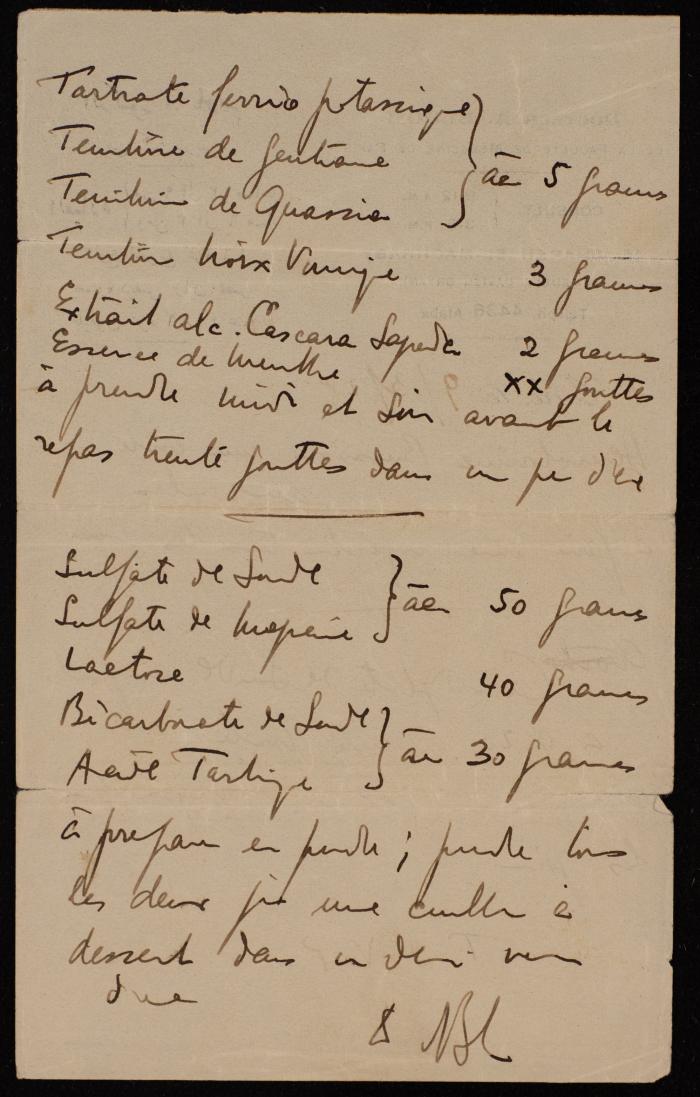 Tartrate ferrico potassique
Teinture de gentiane
āa 5 grames
Teinture de Quassia
Teinture Noix Vomique 3 grames
Extrait alc. Cascara Sagrada 2 grames
Essence de menthe XX gouttes
à prendre midi et soir avant le
repas trente gouttes dans un peu d'eau
Sulfate de Soude
āa 50 grames
Sulfate de magnésie
Lactose 40 grames
Bicarbonate de Soude
āa 30 grames
Acide Tartrique
à préparer en poudre ; prendre tous
les deux jours une cuiller à
dessert dans un demi verre
d'eau